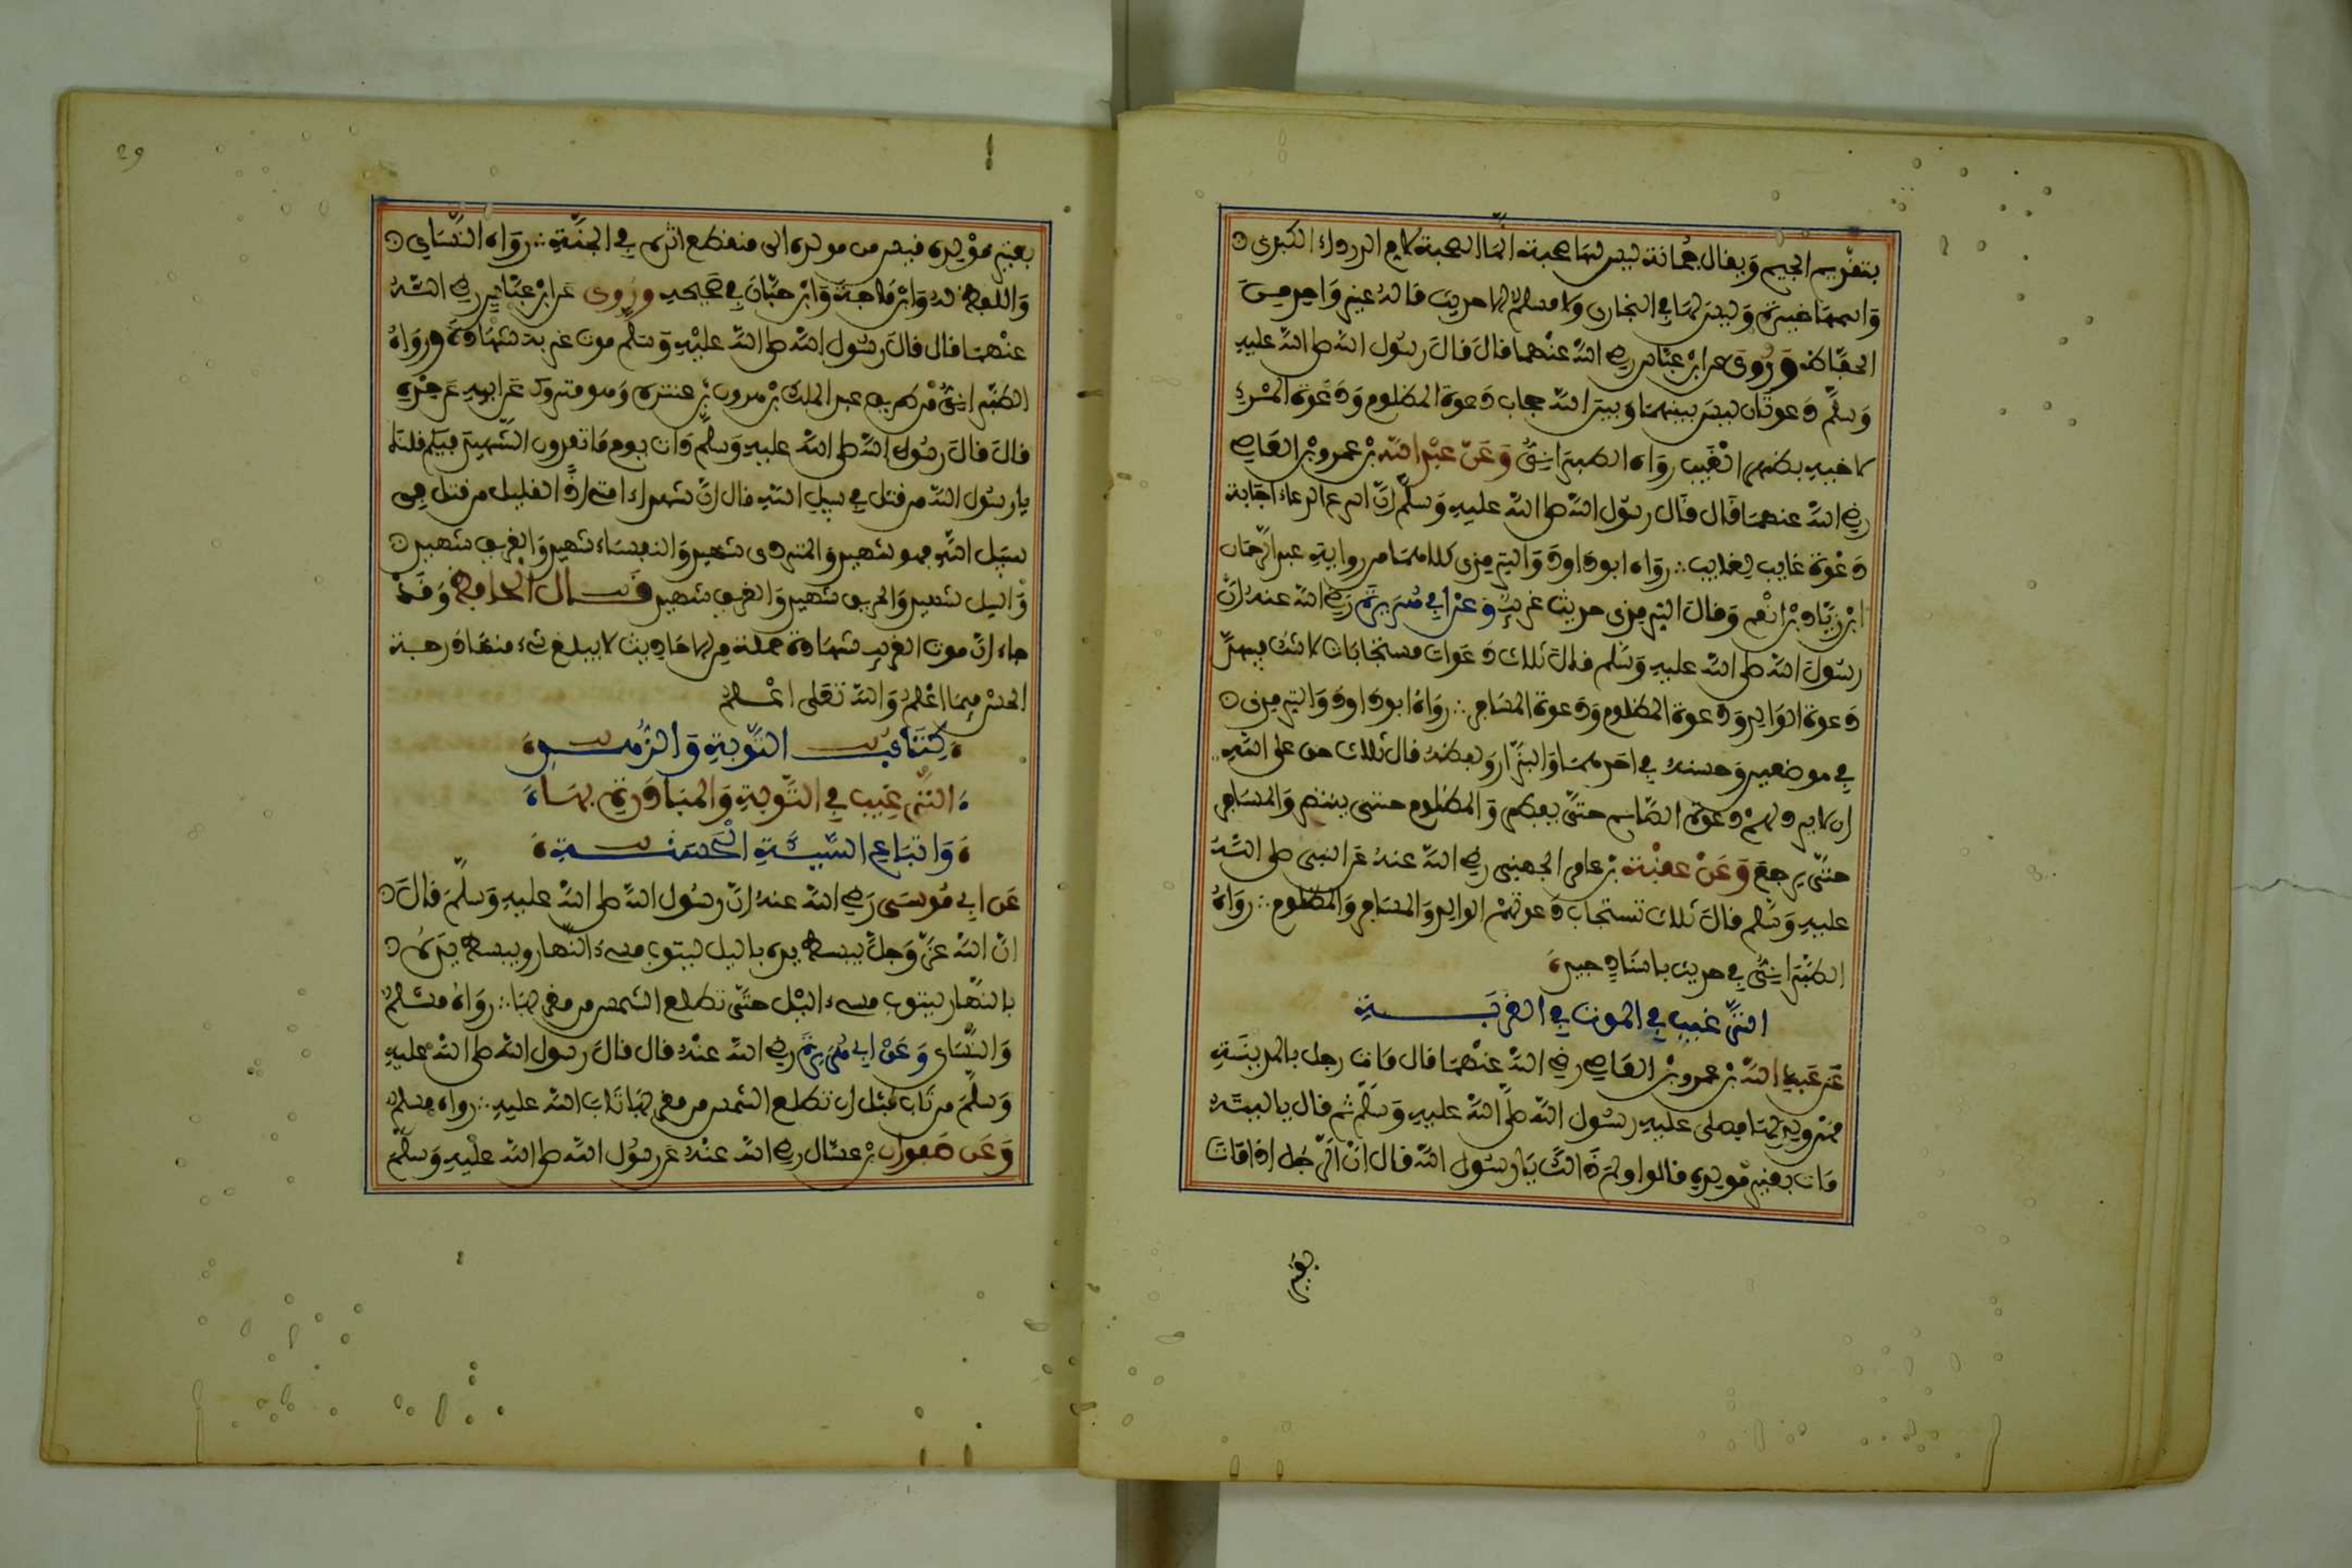 بتقديم الجيم ويقال جمانة ليس لها صحبة انما الصحبة لام الدرداء الكبرى
واسمها خيرة وليس لها في البخاري ولا مسلم حديث قاله غير واحد من
الحفاظ وروي عن ابن عباس رضي الله عنهما قال قال رسول الله صلى الله عليه
وسلم دعوتان ليس بينهما وبين الله حجاب دعوة المظلوم ودعوة المرء
لاخيه بظهر الغيب رواه الطبراني وعن عبد الله بن عمرو بن العاص
رضي الله عنهما قال قال رسول الله صلى الله عليه وسلم ان اسرع الدعاء اجابة
دعوة غايب لغايب رواه ابو داود والترمذي كلاهما من رواية عبد الرحمان
ابن زياد بن انعم وقال الترمذي حديث غريب وعن ابي هريرة رضي الله عنه ان
رسول الله صلى الله عليه وسلم قال ثلاث دعوات مستجابات لا شك فيهن
دعوة الوالد ودعوة المظلوم ودعوة المسافر رواه ابو داود والترمذي
في موضعين وحسنه في احدهما والبزار ولفظه قال ثلاث حق على الله
ان لا يرد لهم دعوة الصائم حتى يفطر والمظلوم حتى ينتصر والمسافر
حتى يرجع وعن عقبة بن عامر الجهني رضي الله عنه عن النبي صلى الله
عليه وسلم قال ثلاث تستجاب دعوتهم الوالد والمسافر والمظلوم رواه
الطبراني في حديث باسناد جيد
الترغيب في الموت في الغربة
عن عبد الله بن عمرو بن العاص رضي الله عنهما قال مات رجل بالمدينة
ممن ولد بها فصلى عليه رسول الله صلى الله عليه وسلم ثم قال يا ليته
مات بغير مولده قالوا ولم ذالك يا رسول الله قال ان الرجل اذا مات
بغير
29
بغير مولده قيس من مولده الى منقطع اثره في الجنة رواه النساي
واللفظ له وابن ماجة وابن حبان في صحيحه وروي عن ابن عباس رضي الله
عنهما قال قال رسول الله صلى الله عليه وسلم موت غربة شهادة ورواه
الطبراني من طريق عبد الملك بن هرون بن عنترة وهو متروك عن ابيه عن جده
قال قال رسول الله صلى الله عليه وسلم ذات يوم ما تعدون الشهيد فيكم قلنا
يا رسول الله من قتل في سبيل الله قال ان شهداء امتي اذا لقليل من قتل في
سبيل الله فهو شهيد والمتردى شهيد والنفساء شهيد والغريق شهيد
والسل شهيد والحريق شهيد والغريب شهيد قال الحافظ وقد
جاء ان موت الغريب شهادة جملة من الاحاديث لا يبلغ شيء منها درجة
الحسن فيما اعلم والله تعلى اعلم
كتاب التوبة والزهد
الترغيب في التوبة والمبادرة بها
واتباع السيئة الحسنة
عن ابي موسى رضي الله عنه ان رسول الله صلى الله عليه وسلم قال
ان الله عز وجل يبسط يده بالليل ليتوب مسيء النهار ويبسط يده
بالنهار ليتوب مسيء الليل حتى تطلع الشمس من مغربها رواه مسلم
والنساي وعن ابي هريرة رضي الله عنه قال قال رسول الله صلى الله عليه
وسلم من تاب قبل ان تطلع الشمس من مغربها تاب الله عليه رواه مسلم
وعن صفوان بن عسال رضي الله عنه عن رسول الله صلى الله عليه وسلم